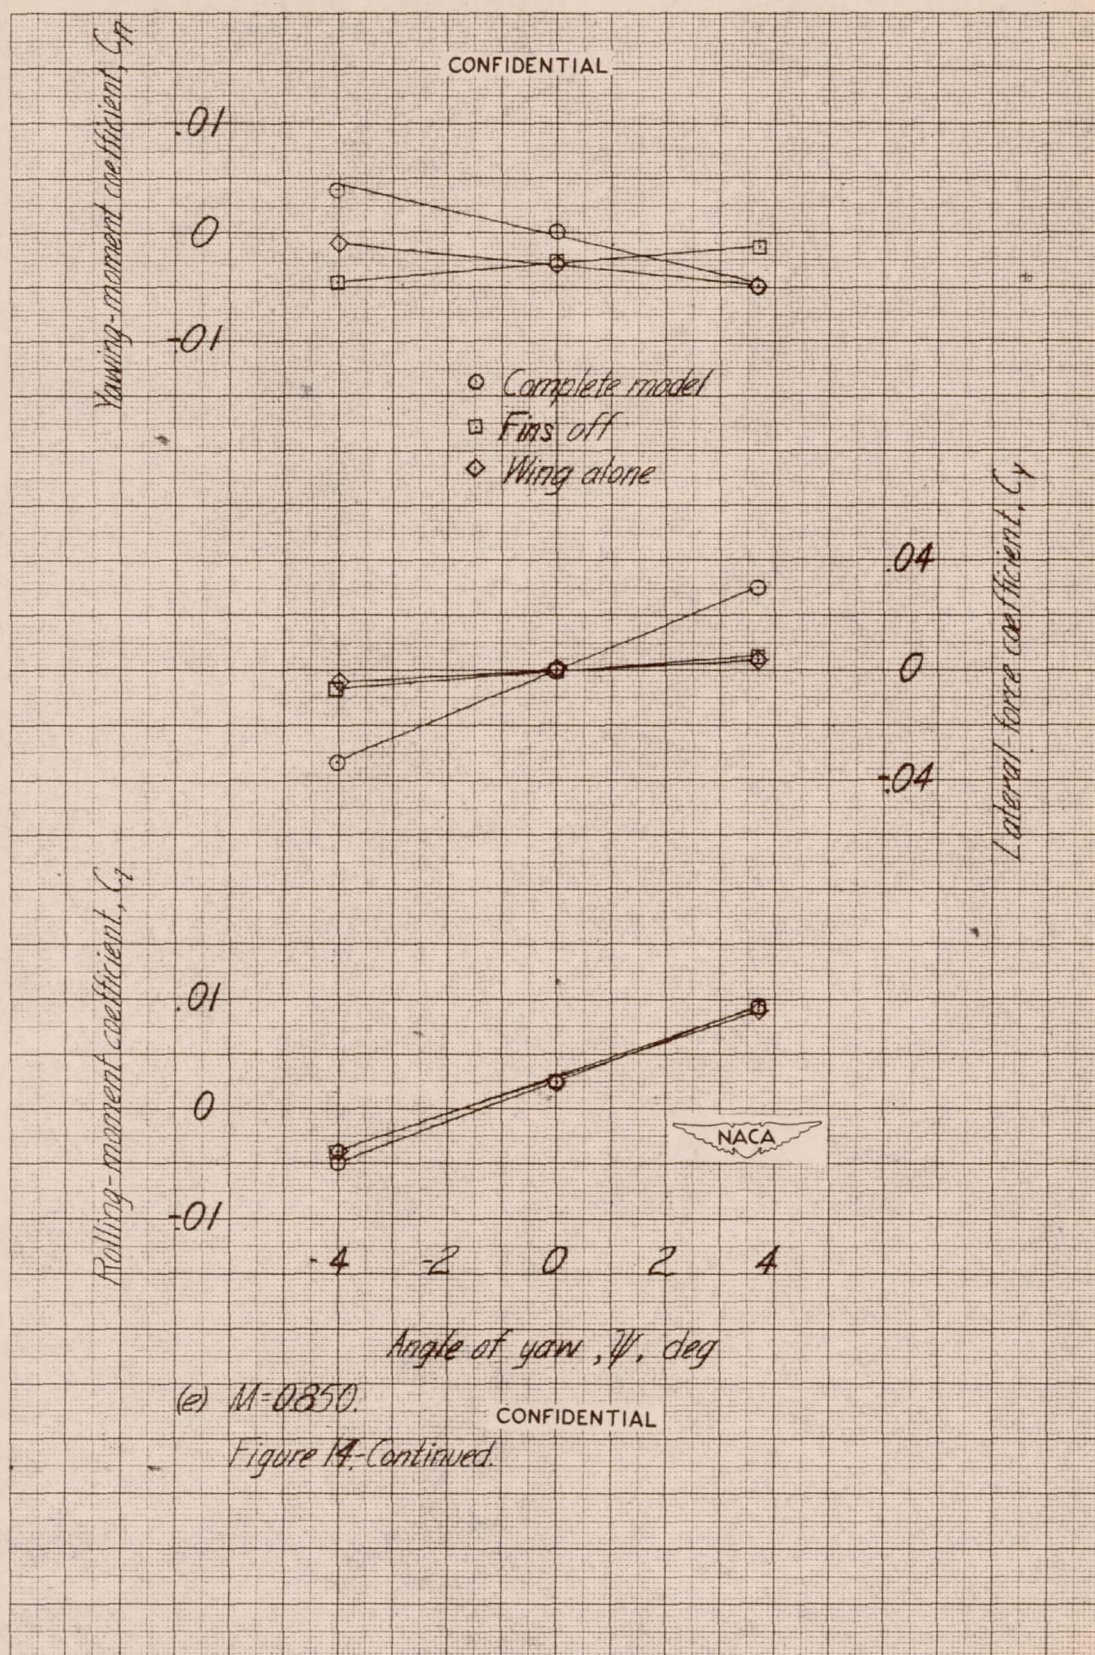 CONFIDENTIAL
Yawing-moment coefficient, Cn
.01
0
-.01
Complete model
Fins off
Wing alone
Lateral-force coefficient, CY
.04
0
-.04
Rolling-moment coefficient, Cl
.01
0
-.01
NACA
-4 -2 0 2 4
Angle of yaw, ψ, deg
(e) M=0.850.
CONFIDENTIAL
Figure 14.-Continued.